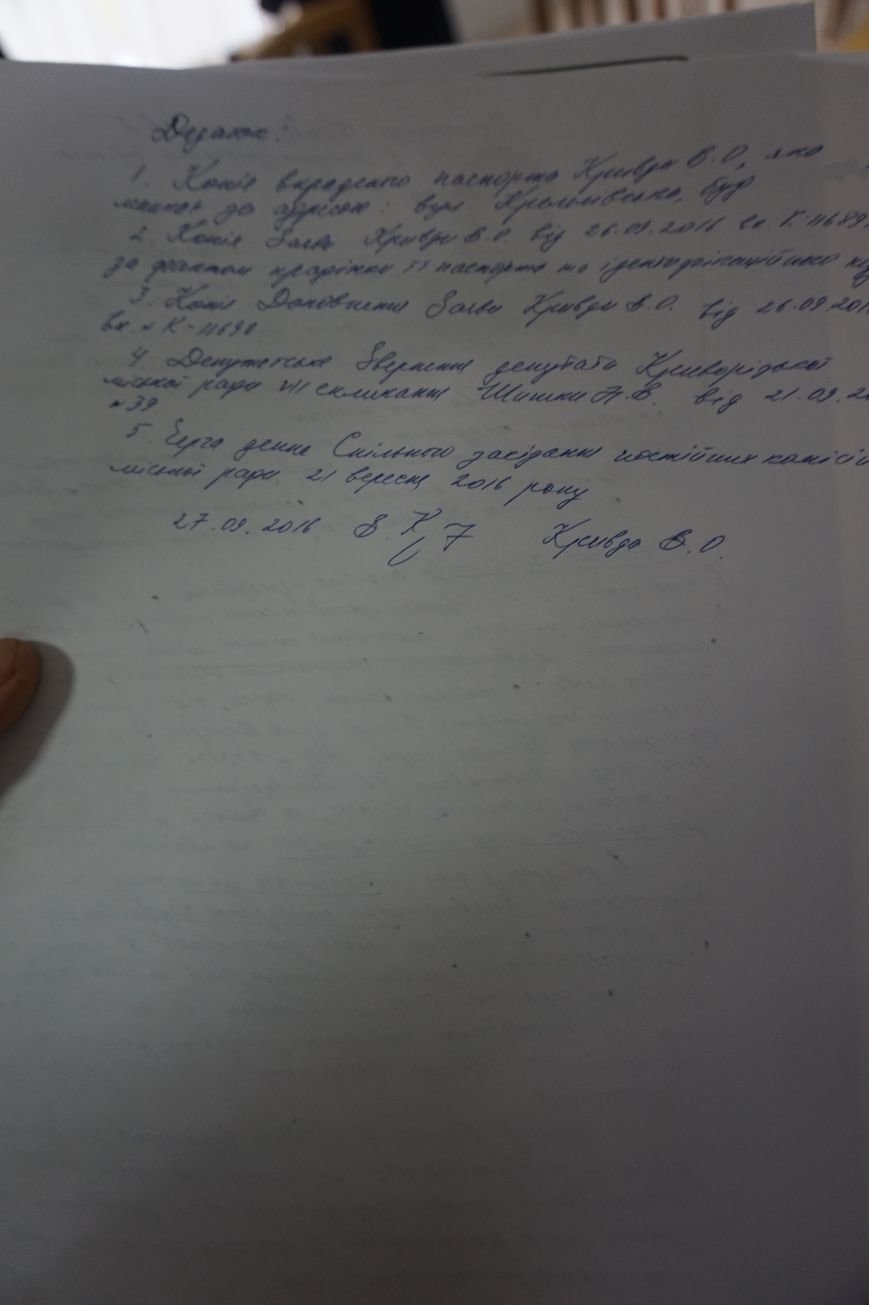 Додаток:
1. Копія вкраденого паспорта Кривди В.О., яка
мешкає за адресою: вул Кремлівська, буд
2. Копія Заяви Кривди В.О. від 26.09.2016 вх. К-11689
за фактом крадіжки її паспорта та ідентифікаційного
3. Копія Доповнення Заяви Кривди В.О. від 26.09.201
вх. № К-11690
4. Депутатське Звернення депутата Криворізької
міської ради VII скликання Шишки Н.В. від 21.09.2
№39
5. Черга денна Спільного засідання постійних комісій
міської ради 21 вересня 2016 року
27.09.2016 Кривда В.О.